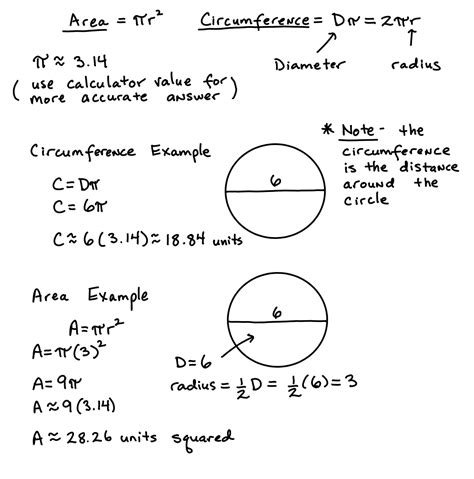 Area = πr² Circumference = Dπ = 2πr
Diameter radius
π ≈ 3.14
(use calculator value for
more accurate answer)
* Note - the
circumference
is the distance
around the
circle
Circumference Example
C = Dπ
C = 6π
C ≈ 6(3.14) ≈ 18.84 units
6
Area Example
A = πr²
A = π(3)²
A = 9π
A ≈ 9(3.14)
A ≈ 28.26 units squared
6
D = 6
radius = ½D = ½(6) = 3